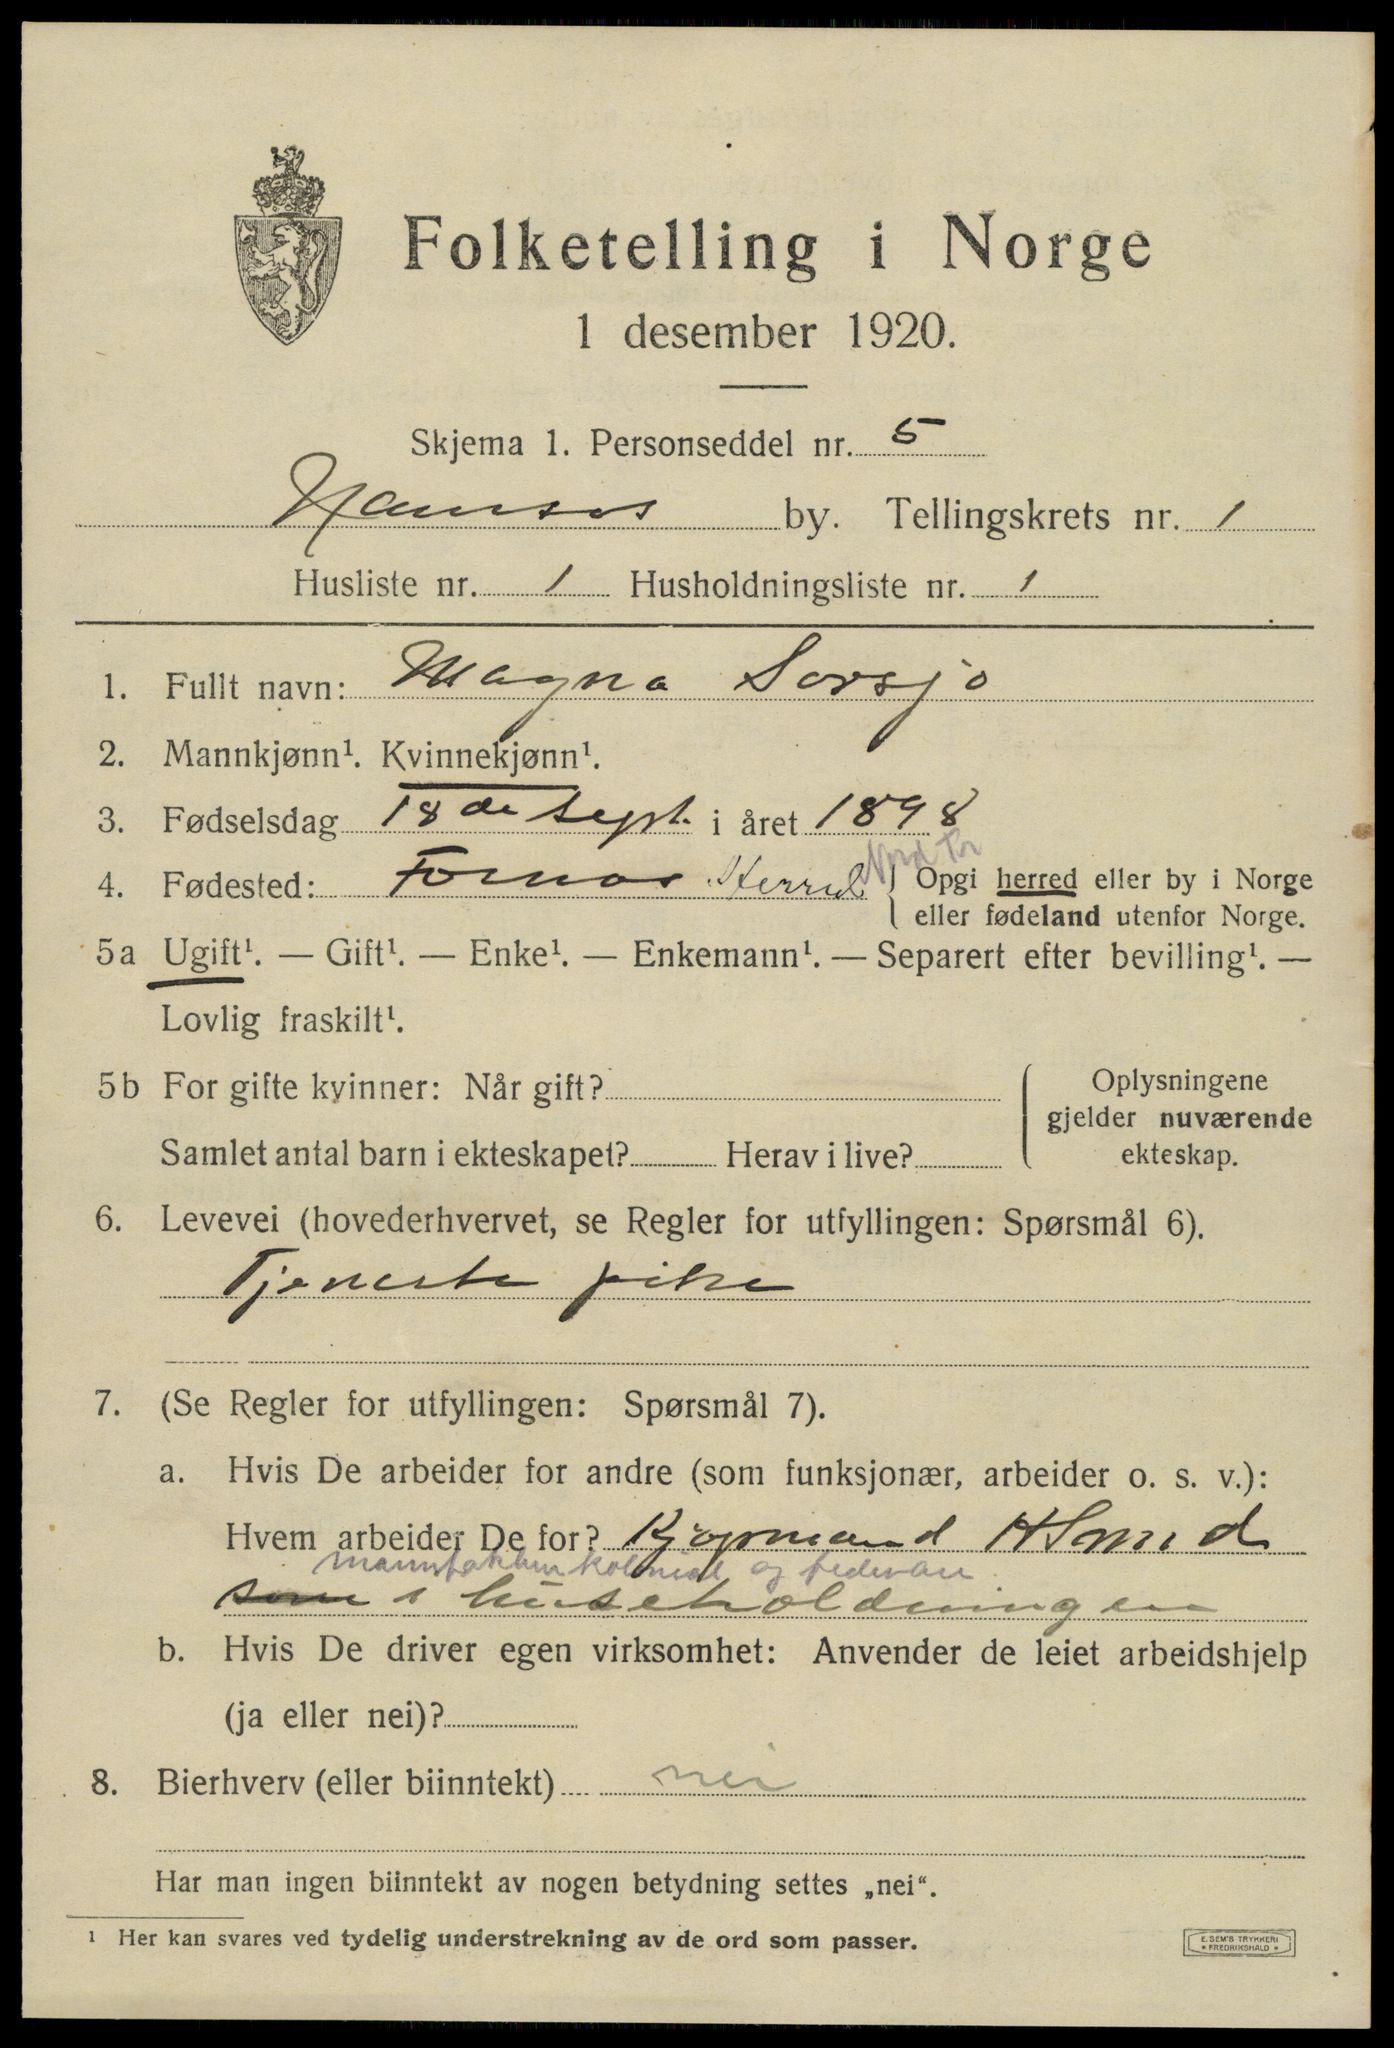 Folketelling i Norge
1 desember 1920.
Skjema 1. Personseddel nr. 5
Namsos by. Tellingskrets nr. 1
Husliste nr. 1 Husholdningsliste nr. 1
1. Fullt navn: Magna Sorsjo
2. Mannkjønn¹. Kvinnekjønn¹.
3. Fødselsdag 18 de Sept. i året 1898
Nord Tr
4. Fødested: Fornos Herred { Opgi herred eller by i Norge
eller fødeland utenfor Norge.
5a Ugift¹. — Gift¹. — Enke¹. — Enkemann¹. — Separert efter bevilling¹. —
Lovlig fraskilt¹.
5b For gifte kvinner: Når gift?
Samlet antal barn i ekteskapet? Herav i live?
Oplysningene
gjelder nuværende
ekteskap.
6. Levevei (hovederhvervet, se Regler for utfyllingen: Spørsmål 6).
Tjeneste pike
7. (Se Regler for utfyllingen: Spørsmål 7).
a. Hvis De arbeider for andre (som funksjonær, arbeider o. s. v.):
Hvem arbeider De for? Kjøpmand
kolonial og
som i huseholdningen
b. Hvis De driver egen virksomhet: Anvender de leiet arbeidshjelp
(ja eller nei)?
8. Bierhverv (eller biinntekt) nei
Har man ingen biinntekt av nogen betydning settes „nei“.
¹ Her kan svares ved tydelig understrekning av de ord som passer.
E. SEM'S TRYKKERI
* FREDRIKSHALD *